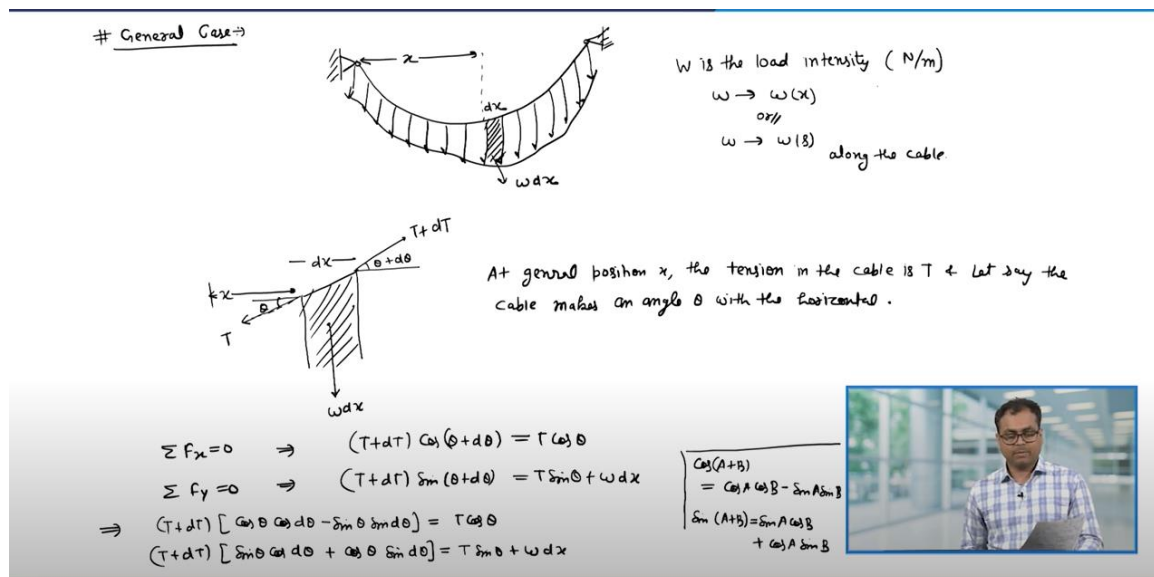 # General Case→
x
W is the load intensity (N/m)
w → w(x)
or//
w → w(s) along the cable.
dx
wdx
T+dT
dx
θ+dθ
x
θ
T
At genral position x, the tension in the cable is T & Let say the
cable makes an angle θ with the horizontal.
wdx
ΣFx=0 ⇒ (T+dT) Cos(θ+dθ) = T Cosθ
ΣFy=0 ⇒ (T+dT) Sin(θ+dθ) = T Sinθ + wdx
⇒ (T+dT) [Cosθ Cosdθ - Sinθ Sindθ] = T Cosθ
(T+dT) [Sinθ Cosdθ + Cosθ Sindθ] = T Sinθ + wdx
Cos(A+B)
= CosA CosB - SinA SinB
Sin(A+B) = SinA CosB
+ CosA SinB